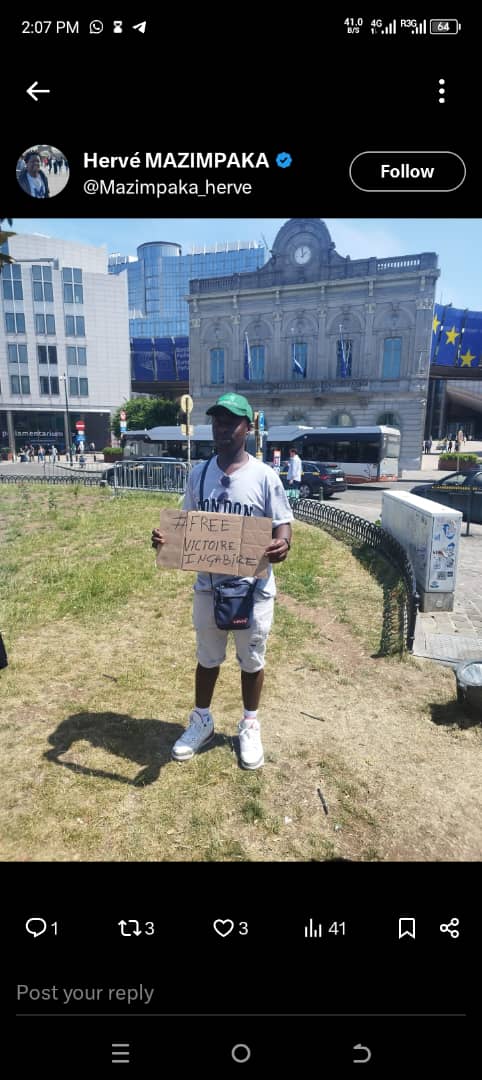 2:07 PM
41.0 B/S 4G R3G 64
Hervé MAZIMPAKA
@Mazimpaka_herve
Follow
parlamentarium
LONDON
#FREE
VICTOIRE
INGABIRE
Levi's
1 3 3 41
Post your reply